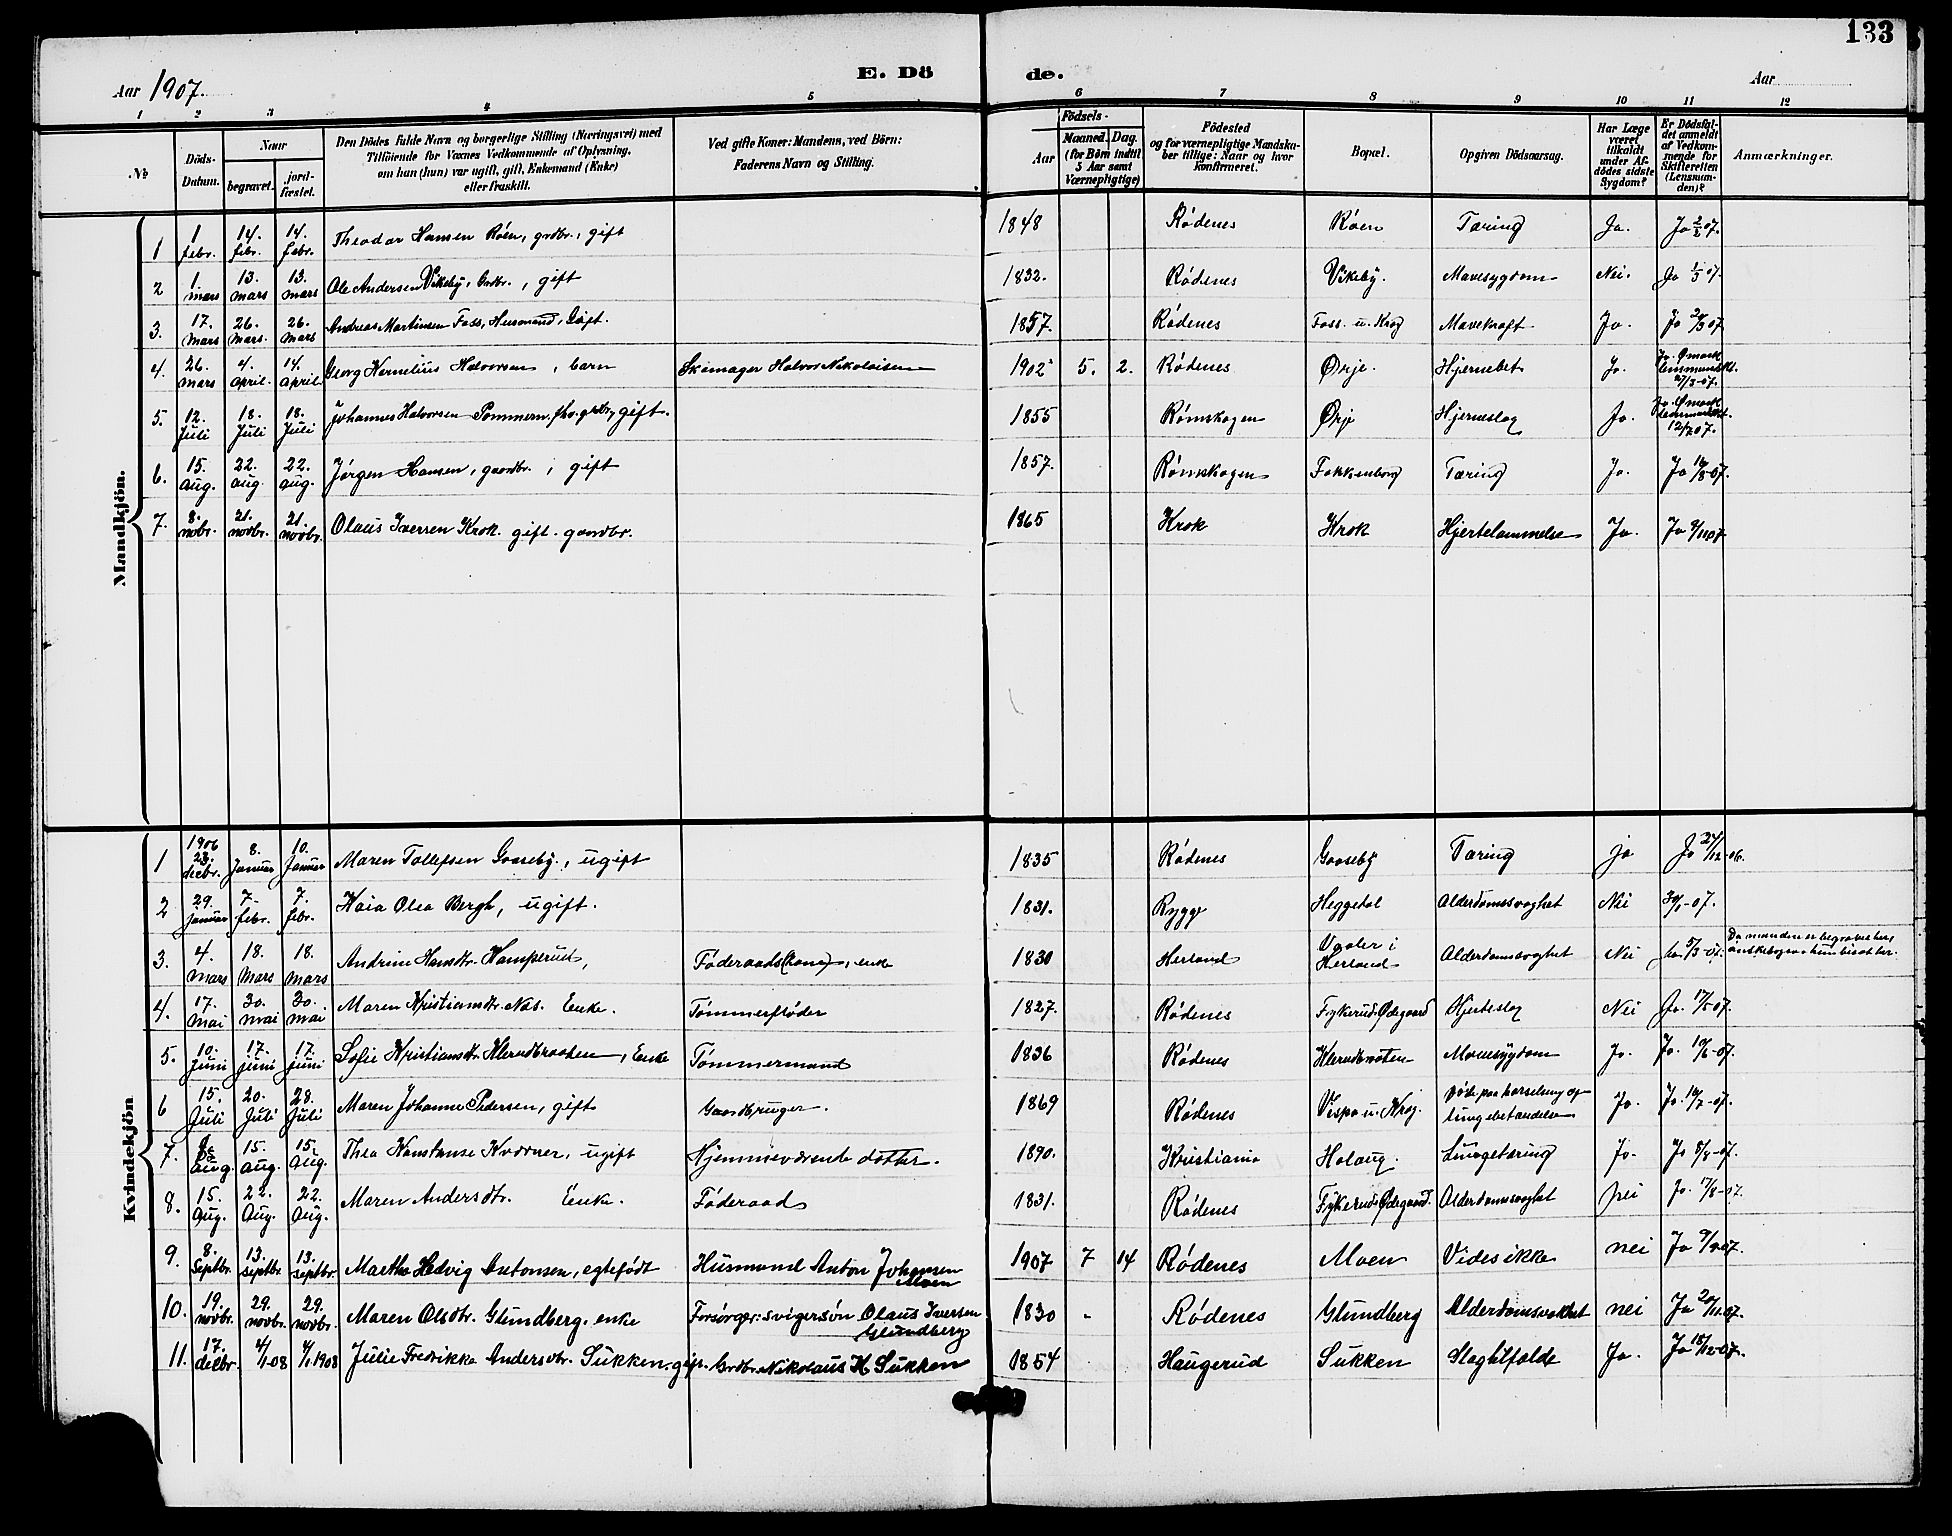 133
E. Dö de.
Aar 1907. Aar
1 2 3 4 5 6 7 8 9 10 11 12
No
Döds-Datum.
Naar
begravet.
jord-fæstet.
Den Dödes fulde Navn og borgerlige Stilling (Næringsvei) med
Tilföiende for Voxnes Vedkommende af Oplysning,
om han (hun) var ugift, gift, Enkemand (Enke)
eller fraskilt.
Ved gifte Koner: Mandens, ved Börn:
Faderens Navn og Stilling.
Födsels-
Aar
Maaned. Dag.
(for Börn indtil
5 Aar samt
Værnepligtige)
Födested
og for værnepligtige Mandska-
ber tillige: Naar og hvor
konfirmeret.
Bopæl.
Opgiven Dödsaarsag.
Har Læge
været
tilkaldt
under Af-
dödes sidste
Sygdom?
Er Dödsfal-
det anmeldt
af Vedkom-
mende for
Skifteretten
(Lensman-
den)?
Anmærkninger.
Mandkjön.
1 1 febr. 14. febr. 14. febr. Theodor Hansen Röen, grdbr., gift 1848 Rödenes Röen Tæring Ja. Ja 2/2 07.
2 1. mars 13. mars 13. mars Ole Andersen Vikeby, Grdbr., gift 1832. Rödenes Vikeby. Mavesygdom Nei. Ja 1/3 07.
3. 17. mars 26. Mars. 26. Mars Andreas Martinsen Foss, Husmand, Gift. 1857. Rödenes Foss u. Krog Mavekræft Ja. Ja 07
4. 26. mars 4. april. 14. april. Georg Kornelius Halvorsen, barn Skomager Halvor Nikolaisen 1902 5. 2. Rödenes Ørje. Hjernebet. Ja. Ja. Ømark lensmandskt. 27/3-07.
5. 12. Juli 18. Juli 18. Juli Johannes Halvorsen Pommern, fhv. grdbr, gift. 1855 Römskogen Ørje Hjerneslag Ja. Ja. Ømark 12/7 07.
6. 15. Aug. 22. aug. 22. aug. Jörgen Hansen, gaardbr., gift 1857. Römskogen Fokkenborg Tæring Ja. Ja 16/8-07.
7. 8. nobr. 21. novbr. 21. novbr. Olaus Iversen Krok. gift. gaardbr. 1865 Krok Krok Hjertelammelse Ja. Ja 9/11 07
Kvindekjön
1 1906 23. decbr. 8. Januar 10. Januar Maren Tollefsen Gaaseby, ugift 1835 Rödenes Gaaseby Tæring ja Ja 27/12-06.
2 29. Januar 7. febr. 7. febr. Kaia Olea Bergh, ugift. 1831. Rygge Heggedal Alderdomssvaghet Nei 30/1-07.
3. 4. mars 18. Mars 18. mars Andrine Hansdtr. Kamperud, Föderaads(kone), enke 1830 Herland Vgaler i Herland Alderdomssvaghet Nei Ja 5/3-07. Da manden er begravet her,
4. 17. mai 30. mai 30. mai Maren Kristiansdtr. Nas. Enke. Tømmerfløder 1827. Rödenes Fykerud Ødegaard Hjerteslag Nei Ja. 17/5-07.
5. 10. Juni 17. juni 17. juni Sofie Kristiansdtr. Klerudbraaten, Enke Tømmermand 1836 Rödenes Klerudbraaten Mavesygdom Ja. Ja. 10/6-07.
6 15. Juli 20. Juli 28. Juli Maren Johanne Pedersen, gift Gaardbruger. 1869 Rödenes Vispa u. Krog. Döde paa barselseng af lungebetændelse Ja. Ja. 16/7-07.
7. aug. 15. aug. 15. Aug. Thea Konstanse Kværner, ugift Hjemmeværende datter. 1890. Kristiania Holaug. Lungetæring Ja. Ja 8/8-07.
8. 15. Aug. 22. Aug. 22. Aug. Maren Andersdtr. Enke. Föderaad 1831. Rödenes Fykerud Ødegaard. Alderdomssvaghet nei Ja. 17/8-07.
9. 8. Septbr. 13. septbr 13. septbr. Martha Hedvig Antonsen, egtefödt Husmand Anton Johansen Moen 1907 7 14 Rödenes Moen Vides ikke nei Ja 9/9 07.
10. 19. novbr. 29. novbr. 29. novbr. Maren Olsdtr. Glundberg. enke Forsörger: svigersön Olaus Iversen Glundberg 1830 - Rödenes Glundberg Alderdomsvakhet nei Ja 20/11 07.
11. 17. decbr. 4/1 08 4/1 1908 Julie Fredrikke Andersdtr. Sukken. gift. Grdbr. Nikolaus H Sukken 1854 Haugerud Sukken Slagtilfælde Ja. Ja 18/12-07.